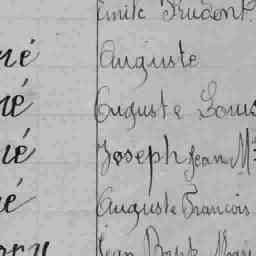 Emile Prudent
né Auguste
né Auguste Louis
né Joseph Jean M
né Auguste Francois
ory Jean Bapt